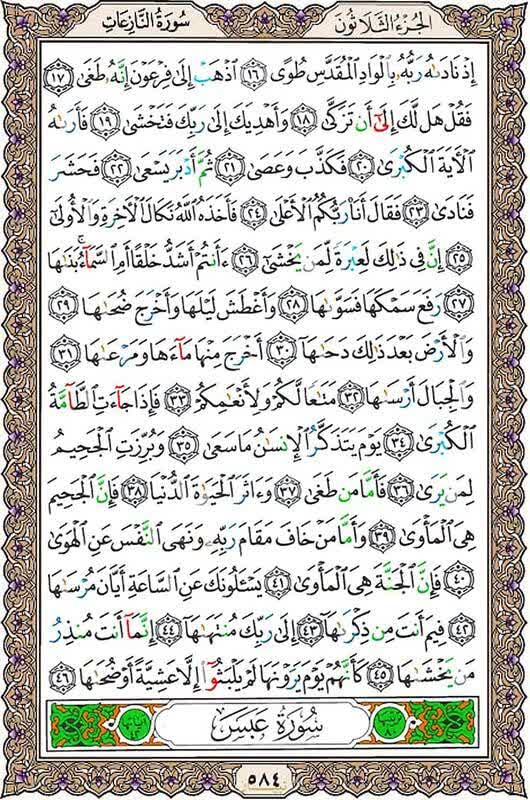 الجُزءُ الثَّلَاثُونَ سُورَةُ النَّازِعَاتِ
إِذْ نَادَىٰهُ رَبُّهُۥ بِٱلْوَادِ ٱلْمُقَدَّسِ طُوًى ١٦ ٱذْهَبْ إِلَىٰ فِرْعَوْنَ إِنَّهُۥ طَغَىٰ ١٧
فَقُلْ هَل لَّكَ إِلَىٰٓ أَن تَزَكَّىٰ ١٨ وَأَهْدِيَكَ إِلَىٰ رَبِّكَ فَتَخْشَىٰ ١٩ فَأَرَىٰهُ
ٱلْأٓيَةَ ٱلْكُبْرَىٰ ٢٠ فَكَذَّبَ وَعَصَىٰ ٢١ ثُمَّ أَدْبَرَ يَسْعَىٰ ٢٢ فَحَشَرَ
فَنَادَىٰ ٢٣ فَقَالَ أَنَا۠ رَبُّكُمُ ٱلْأَعْلَىٰ ٢٤ فَأَخَذَهُ ٱللَّهُ نَكَالَ ٱلْأٓخِرَةِ وَٱلْأُولَىٰٓ
٢٥ إِنَّ فِى ذَٰلِكَ لَعِبْرَةً لِّمَن يَخْشَىٰٓ ٢٦ ءَأَنتُمْ أَشَدُّ خَلْقًا أَمِ ٱلسَّمَآءُ ۚ بَنَىٰهَا
٢٧ رَفَعَ سَمْكَهَا فَسَوَّىٰهَا ٢٨ وَأَغْطَشَ لَيْلَهَا وَأَخْرَجَ ضُحَىٰهَا ٢٩
وَٱلْأَرْضَ بَعْدَ ذَٰلِكَ دَحَىٰهَآ ٣٠ أَخْرَجَ مِنْهَا مَآءَهَا وَمَرْعَىٰهَا ٣١
وَٱلْجِبَالَ أَرْسَىٰهَا ٣٢ مَتَٰعًا لَّكُمْ وَلِأَنْعَٰمِكُمْ ٣٣ فَإِذَا جَآءَتِ ٱلطَّآمَّةُ
ٱلْكُبْرَىٰ ٣٤ يَوْمَ يَتَذَكَّرُ ٱلْإِنسَٰنُ مَا سَعَىٰ ٣٥ وَبُرِّزَتِ ٱلْجَحِيمُ
لِمَن يَرَىٰ ٣٦ فَأَمَّا مَن طَغَىٰ ٣٧ وَءَاثَرَ ٱلْحَيَوٰةَ ٱلدُّنْيَا ٣٨ فَإِنَّ ٱلْجَحِيمَ
هِىَ ٱلْمَأْوَىٰ ٣٩ وَأَمَّا مَنْ خَافَ مَقَامَ رَبِّهِۦ وَنَهَى ٱلنَّفْسَ عَنِ ٱلْهَوَىٰ
٤٠ فَإِنَّ ٱلْجَنَّةَ هِىَ ٱلْمَأْوَىٰ ٤١ يَسْـَٔلُونَكَ عَنِ ٱلسَّاعَةِ أَيَّانَ مُرْسَىٰهَا
٤٢ فِيمَ أَنتَ مِن ذِكْرَىٰهَآ ٤٣ إِلَىٰ رَبِّكَ مُنتَهَىٰهَآ ٤٤ إِنَّمَآ أَنتَ مُنذِرُ
مَن يَخْشَىٰهَا ٤٥ كَأَنَّهُمْ يَوْمَ يَرَوْنَهَا لَمْ يَلْبَثُوٓا۟ إِلَّا عَشِيَّةً أَوْ ضُحَىٰهَا ٤٦
سُورَةُ عَبَسَ
٥٨٤